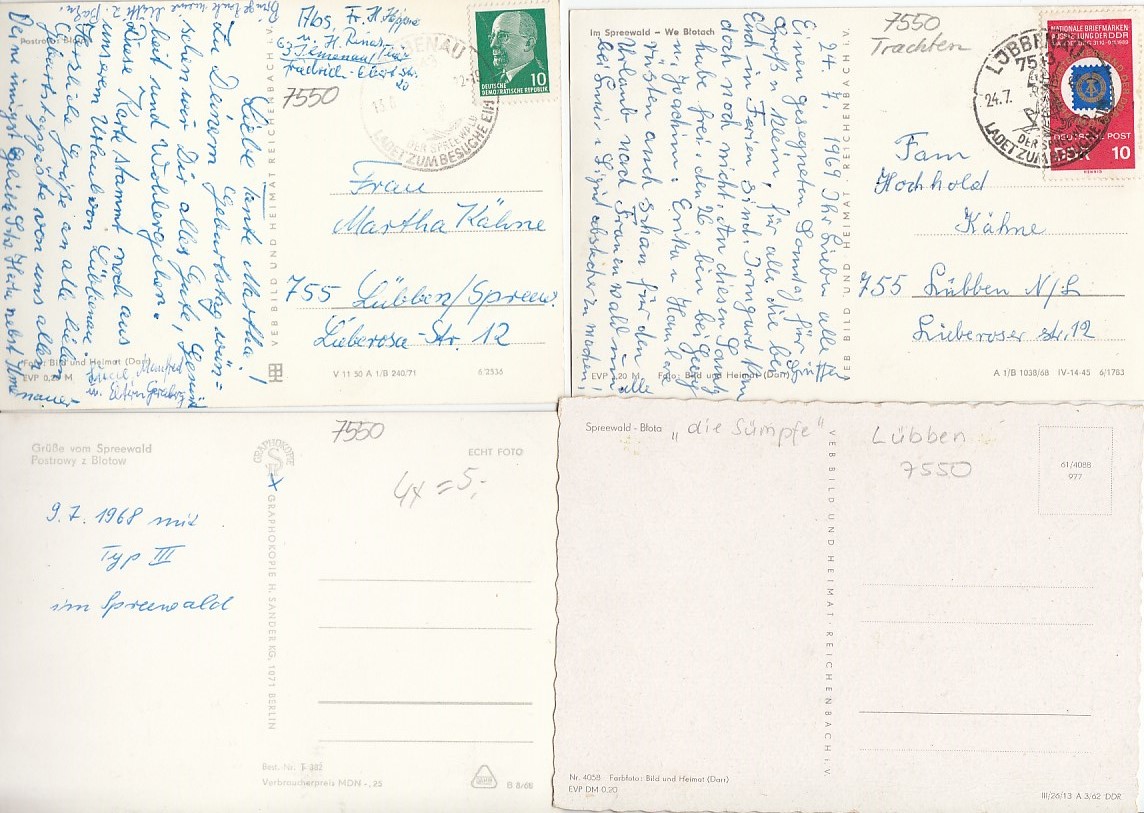 Postrow z Błota
7550
63 Ilmenau/Thür.
Friedrich-Ebert-Str.
20
DER SPREEWALD
LADET ZUM BESUCHE EIN
10
DEUTSCHE
DEMOKRATISCHE REPUBLIK
Liebe Tante Martha!
Zu Deinem Geburtstag wün=
schen wir Dir alles Gute, Gesund
heit und Wohlergehen.
Diese Karte stammt noch aus
unserem Urlaub von Lübbenau.
Herzliche Grüße an alle lieben
Geburtstagsgäste von uns allen
Frau
Martha Kähne
755 Lübben/Spreew.
Lieberose-Str. 12
VEB BILD UND HEIMAT REICHENBACH i.V.
Foto: Bild und Heimat (Darr)
EVP 0,20 M
V 11 50 A 1/B 240/71
6/2536
Im Spreewald — We Błotach
7550
Trachten
LÜBBENAU
7543
24.7.
DER SPREEWALD
LADET ZUM BESUCHE EIN
NATIONALE BRIEFMARKEN
AUSSTELLUNG DER DDR
DEUTSCHE POST
DDR 10
d. 24.7.1969 Ihr Lieben alle!
Einen gesegneten Sonntag für
Groß u. Klein, für alle die bei
Euch in Ferien sind. Irmgard kam
doch noch nicht. An diesen Sonntag
habe frei, den 26. bin bei Georg
u. Joachim. Erika u. Hannlore
rüsten auch schon für den
Urlaub nach Frauenwald um alle
Fam
Hochhold
Kähne
755 Lübben N/L
Lieberoser Str. 12
VEB BILD UND HEIMAT REICHENBACH i.V.
EVP 0,20 M Foto: Bild und Heimat (Darr)
A 1/B 1038/68 IV-14-45 6/1783
Grüße vom Spreewald
Postrowy z Błotow
7550
GRAPHOKOPIE
ECHT FOTO
x
4x = 5,-
9.7.1968 mit
Typ III
im Spreewald
GRAPHOKOPIE H. SANDER KG, 1071 BERLIN
Best. Nr. T 382
Verbraucherpreis MDN -,25
B 8/68
Spreewald - Błota „die Sümpfe“
Lübben
7550
61/4088
977
VEB BILD UND HEIMAT · REICHENBACH i.V.
Nr. 4058 Farbfoto: Bild und Heimat (Darr)
EVP DM 0,20
III/26/13 A 3/62 DDR